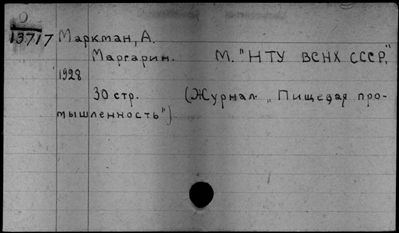 О
13717
Маркман, А.
Маргарин. М. "НТУ ВСНХ СССР,"
1928
30 стр. (Журнал „Пищевая про-
мышленность")